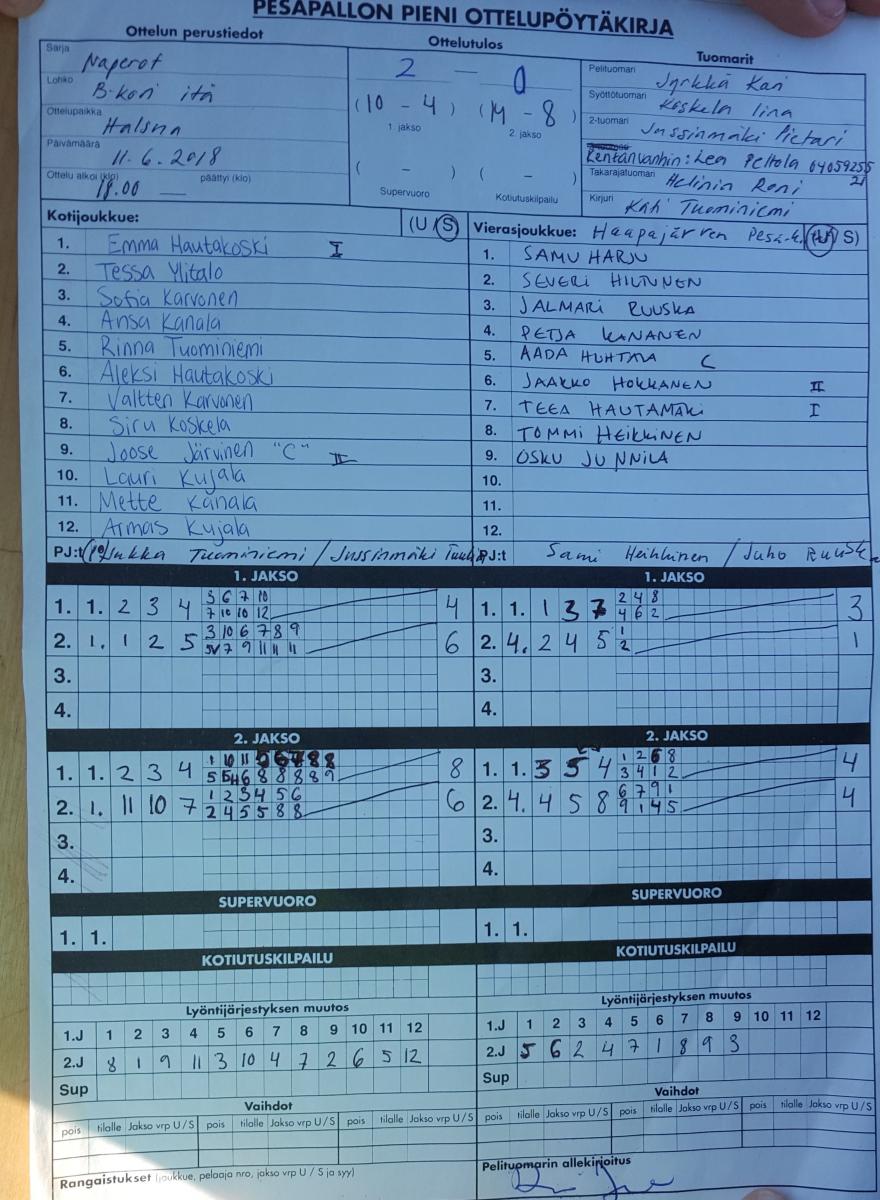 PESÄPALLON PIENI OTTELUPÖYTÄKIRJA
Ottelun perustiedot
Ottelutulos
Tuomarit
Sarja Naperot
Lohko B-kori itä
Ottelupaikka Halsua
Päivämäärä 11.6.2018
Ottelu alkoi (klo) 18.00 päättyi (klo)
2 — 0
(10 - 4) (14 - 8)
1. jakso 2. jakso
( - ) ( - )
Supervuoro Kotiutuskilpailu
Pelituomari Jyrkkä Kari
Syöttötuomari Koskela Iina
2-tuomari Jussinmäki Pietari
Kentänvanhin: Lea Peltola 04059255
21
Takarajatuomari Helinin Roni
Kirjuri Kati Tuominiemi
Kotijoukkue: (U/S)
1. Emma Hautakoski I
2. Tessa Ylitalo
3. Sofia Karvonen
4. Ansa Kanala
5. Rinna Tuominiemi
6. Aleksi Hautakoski
7. Valtten Karvonen
8. Siru Koskela
9. Joose Järvinen "C" II
10. Lauri Kujala
11. Mette Kanala
12. Armas Kujala
PJ:t Jukka Tuominiemi / Jussinmäki
Vierasjoukkue: Haapajärven Pesä-k. (U/S)
1. SAMU HARJU
2. SEVERI HILTUNEN
3. JALMARI RUUSKA
4. PETJA KANANEN
5. AADA HUHTALA C
6. JAAKKO HOKKANEN II
7. TEEA HAUTAMÄKI I
8. TOMMI HEIKKINEN
9. OSKU JUNNILA
10.
11.
12.
PJ:t Sami Heikkinen / Juho Ruuska
1. JAKSO
1. 1. 2 3 4 3 6 7 10 4
7 10 10 12
2. 1. 1 2 5 3 10 6 7 8 9 6
5V 7 9 11 11 11
3.
4.
2. JAKSO
1. 1. 2 3 4 1 10 11 5 6 7 8 8 8
5 5 4 6 8 8 8 8 9
2. 1. 11 10 7 1 2 3 4 5 6 6
2 4 5 5 8 8
3.
4.
SUPERVUORO
1. 1.
KOTIUTUSKILPAILU
Lyöntijärjestyksen muutos
1.J 1 2 3 4 5 6 7 8 9 10 11 12
2.J 8 1 9 11 3 10 4 7 2 6 5 12
Sup
Vaihdot
pois tilalle Jakso vrp U/S pois tilalle Jakso vrp U/S pois tilalle Jakso vrp U/S
Rangaistukset (joukkue, pelaaja nro, jakso vrp U / S ja syy)
1. JAKSO
1. 1. 1 3 7 2 4 8 3
4 6 2
2. 4. 2 4 5 1 1
2
3.
4.
2. JAKSO
1. 1. 3 5 4 1 2 6 8 4
3 4 1 2
2. 4. 4 5 8 6 7 9 1 4
9 1 4 5
3.
4.
SUPERVUORO
1. 1.
KOTIUTUSKILPAILU
Lyöntijärjestyksen muutos
1.J 1 2 3 4 5 6 7 8 9 10 11 12
2.J 5 6 2 4 7 1 8 9 3
Sup
Vaihdot
pois tilalle Jakso vrp U/S pois tilalle Jakso vrp U/S pois tilalle Jakso vrp U/S
Pelituomarin allekirjoitus